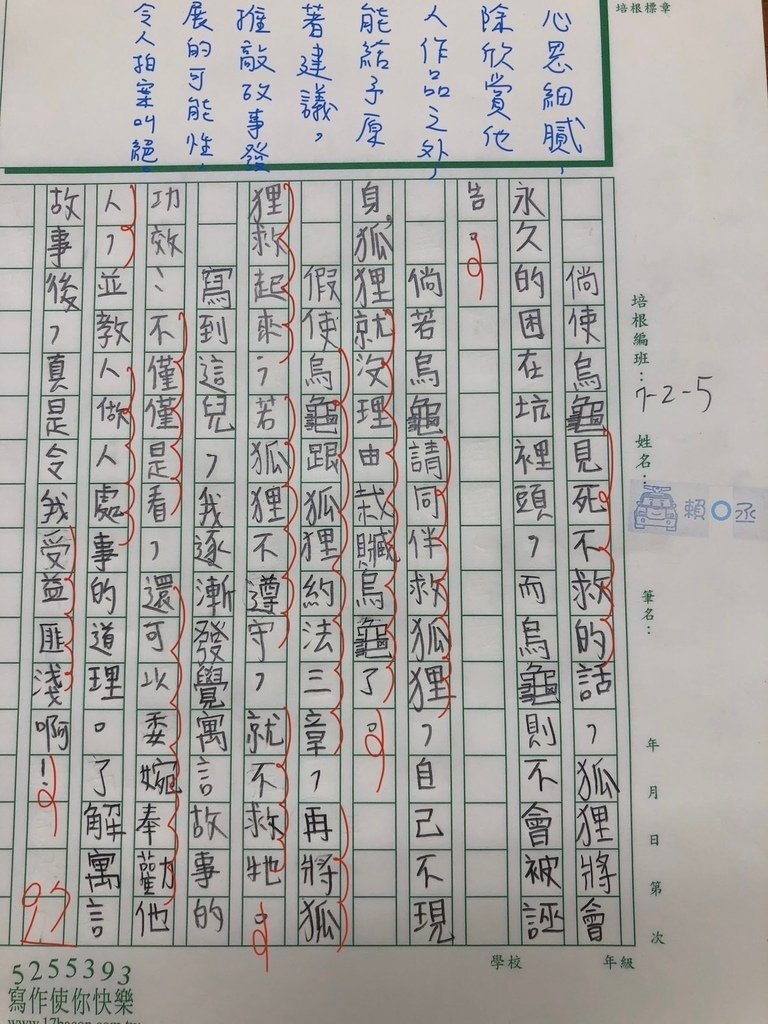 培根標章
心思細膩，
除欣賞他
人作品之外，
能給予原
著建議，
推敲故事發
展的可能性，
令人拍案叫絕。
培根編班：7-2-5
姓名：賴O丞
筆名：
年 月 日 第 次
倘使烏龜見死不救的話，狐狸將會
永久的困在坑裡頭，而烏龜則不會被誣
告。
倘若烏龜請同伴救狐狸，自己不現
身。狐狸就沒理由栽贓烏龜了。
假使烏龜跟狐狸約法三章，再將狐
狸救起來；若狐狸不遵守，就不救牠。
寫到這兒，我逐漸發覺寓言故事的
功效：不僅僅是看，還可以委婉奉勸他
人，並教人做人處事的道理。了解寓言
故事後，真是令我受益匪淺啊！
97
學校 年級
5255393
寫作使你快樂
www.17bacon.com.tw